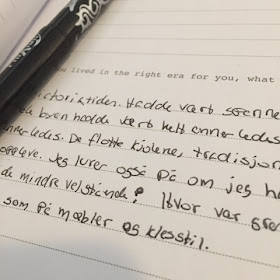 you lived in the right era for you, what
ictoriatiden. Hadde vært spenne
de byen hadde vært helt annerledes
nnerledes. De flotte kjolene, tradisjon
oppleve. Jeg lurer også på om jeg h
de mindre velstående? Hvor var gre
som på møbler og klesstil.